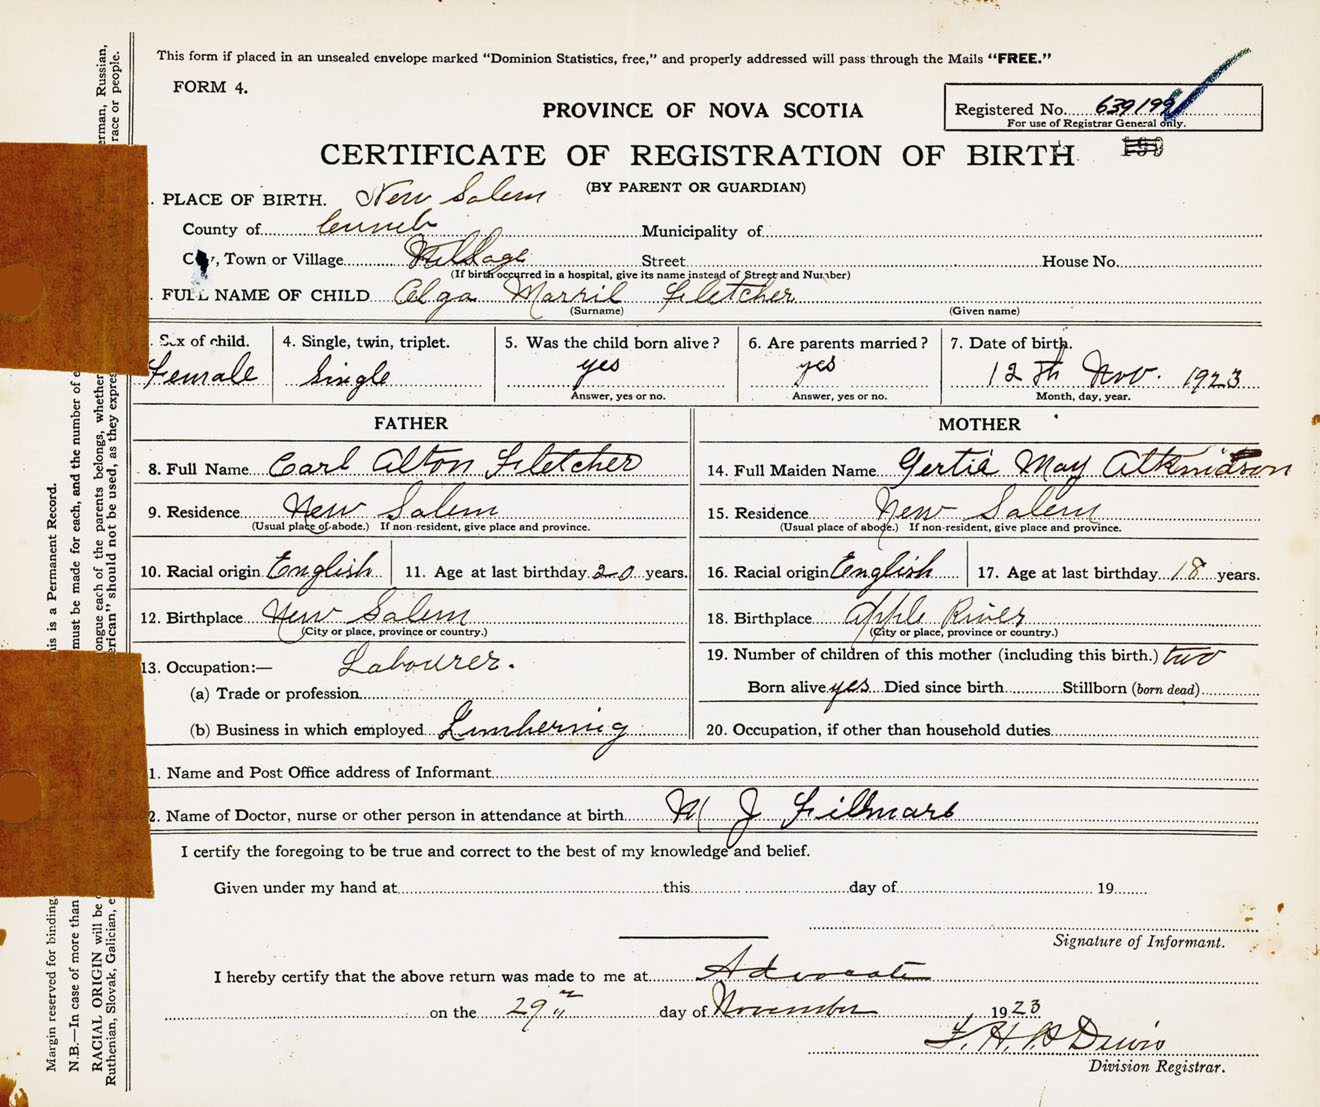 This form if placed in an unsealed envelope marked "Dominion Statistics, free," and properly addressed will pass through the Mails "FREE."
FORM 4.
PROVINCE OF NOVA SCOTIA
Registered No. 639199
For use of Registrar General only.
CERTIFICATE OF REGISTRATION OF BIRTH
(BY PARENT OR GUARDIAN)
. PLACE OF BIRTH. New Salem
County of Cumb Municipality of
City, Town or Village Village Street House No.
(If birth occurred in a hospital, give its name instead of Street and Number)
. FULL NAME OF CHILD Olga Marril Fletcher
(Surname) (Given name)
. Sex of child. 4. Single, twin, triplet. 5. Was the child born alive? 6. Are parents married? 7. Date of birth.
Female Single yes yes 12th Nov. 1923
Answer, yes or no. Answer, yes or no. Month, day, year.
FATHER MOTHER
8. Full Name Carl Alton Fletcher 14. Full Maiden Name Gertie May Atkinson
9. Residence New Salem 15. Residence New Salem
(Usual place of abode.) If non-resident, give place and province. (Usual place of abode.) If non-resident, give place and province.
10. Racial origin English 11. Age at last birthday 20 years. 16. Racial origin English 17. Age at last birthday 18 years.
12. Birthplace New Salem 18. Birthplace Apple River
(City or place, province or country.) (City or place, province or country.)
13. Occupation:— Labourer. 19. Number of children of this mother (including this birth.) two
(a) Trade or profession Born alive yes Died since birth Stillborn (born dead)
(b) Business in which employed Lumbernig 20. Occupation, if other than household duties
1. Name and Post Office address of Informant
2. Name of Doctor, nurse or other person in attendance at birth M J Fillmore
I certify the foregoing to be true and correct to the best of my knowledge and belief.
Given under my hand at this day of 19
Signature of Informant.
I hereby certify that the above return was made to me at Advocate
on the 29th day of November 1923
Dewis
Division Registrar.
Margin reserved for binding. his is a Permanent Record.
N.B.—In case of more than must be made for each, and the number of e
RACIAL ORIGIN will be ongue each of the parents belongs, whether erman, Russian,
Ruthenian, Slovak, Galician, e erican" should not be used, as they expres race or people.